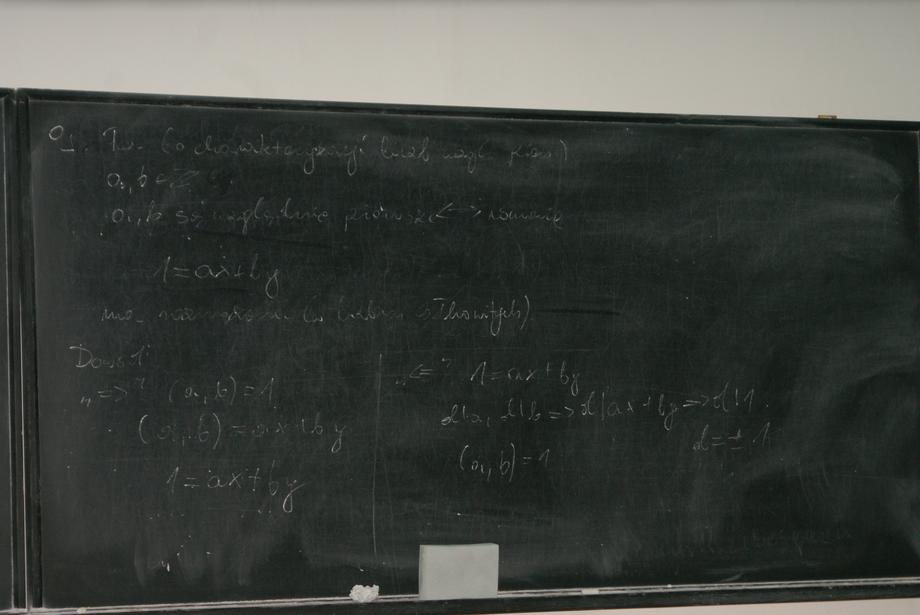 Tw. (o charakteryzacji liczb wzgl. pierw.)
a, b ∈ ℤ
a, b są względnie pierwsze <=> równanie
1 = ax + by
ma rozwiązanie (w liczbach całkowitych)
Dowód:
"=>" (a, b) = 1
(a, b) = ax + by
1 = ax + by
"<=" 1 = ax + by
d|a, d|b => d|ax + by => d|1.
d = ± 1
(a, b) = 1